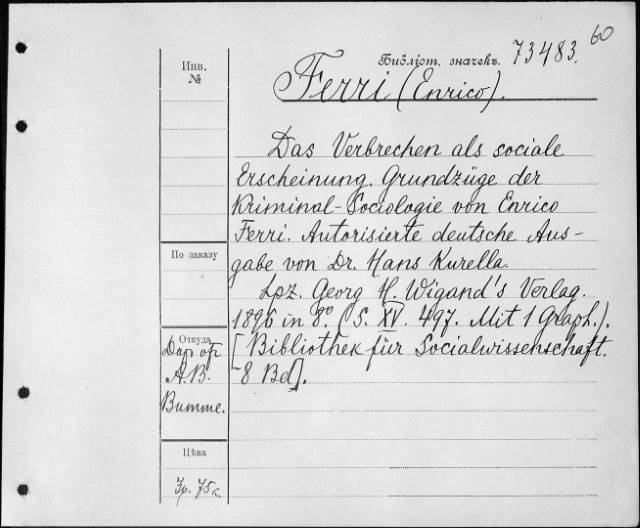 Библіот. значекъ. 73483. 60
Инв.
№
Ferri (Enrico).
Das Verbrechen als sociale
Erscheinung. Grundzüge der
Kriminal-Sociologie von Enrico
Ferri. Autorisierte deutsche Aus-
gabe von Dr. Hans Kurella.
Lpz. Georg H. Wigand's Verlag.
1896 in 8º. (S. XV. 497. Mit 1 Graph.).
[Bibliothek für Socialwissenschaft.
8 Bd].
По заказу
Откуда
Дар
А.В.
Витте.
Цѣна
3р. 75к